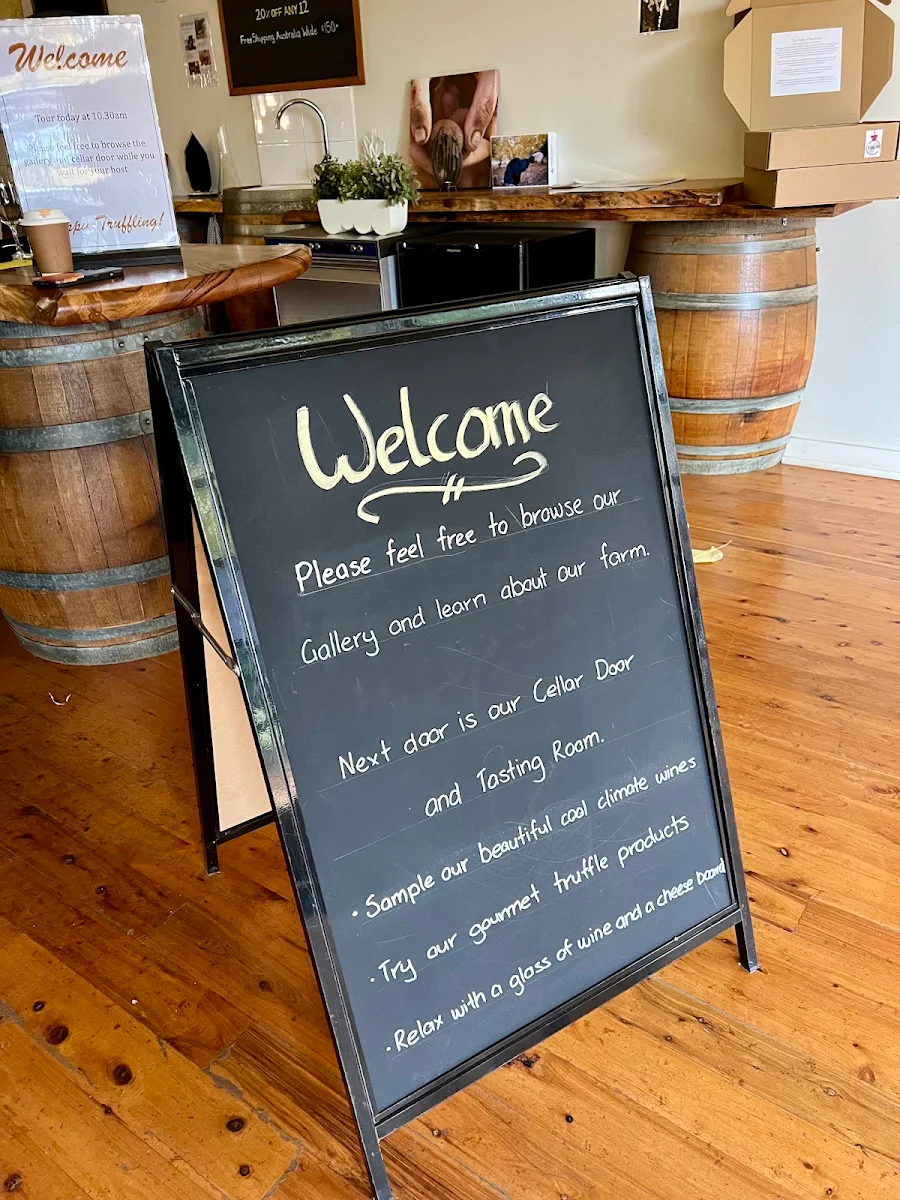 20% OFF ANY 12
Free Shipping Australia Wide $150+
Welcome
Tour today at 10.30am
Please feel free to browse the
gallery and cellar door while you
wait for your host
Truffling!
Welcome
Please feel free to browse our
Gallery and learn about our farm.
Next door is our Cellar Door
and Tasting Room.
• Sample our beautiful cool climate wines
• Try our gourmet truffle products
• Relax with a glass of wine and a cheese board